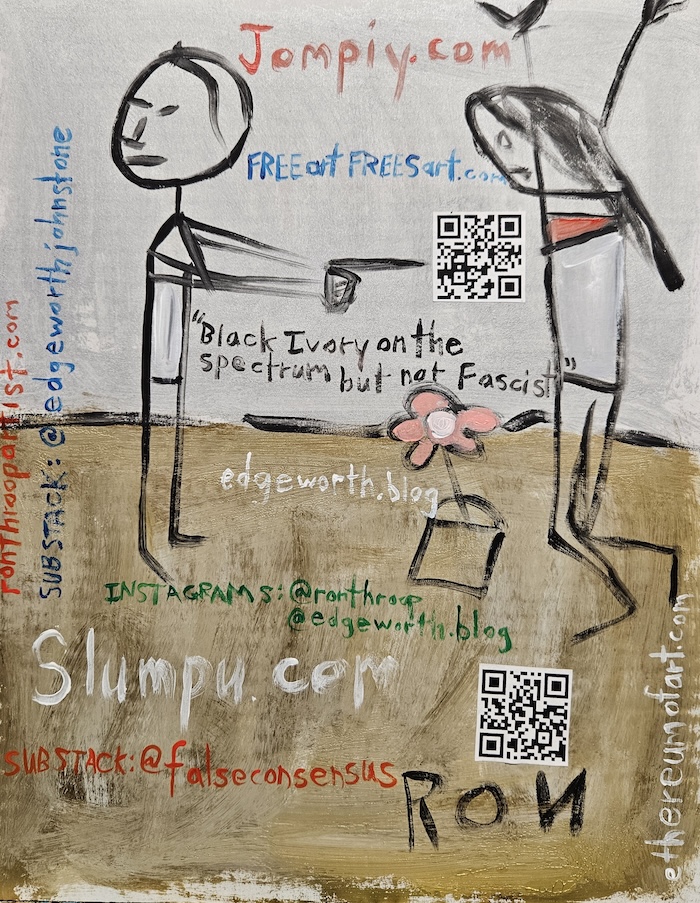 Jompiy.com
FREEart FREESart.com
"Black Ivory on the
spectrum but not Fascist"
edgeworth.blog
INSTAGRAMS: @ronthroop
@edgeworth.blog
Slumpu.com
SUBSTACK: @falseconsensus
RON
ronthroopartist.com
SUBSTACK: @edgeworthjohnstone
ethereumofart.com